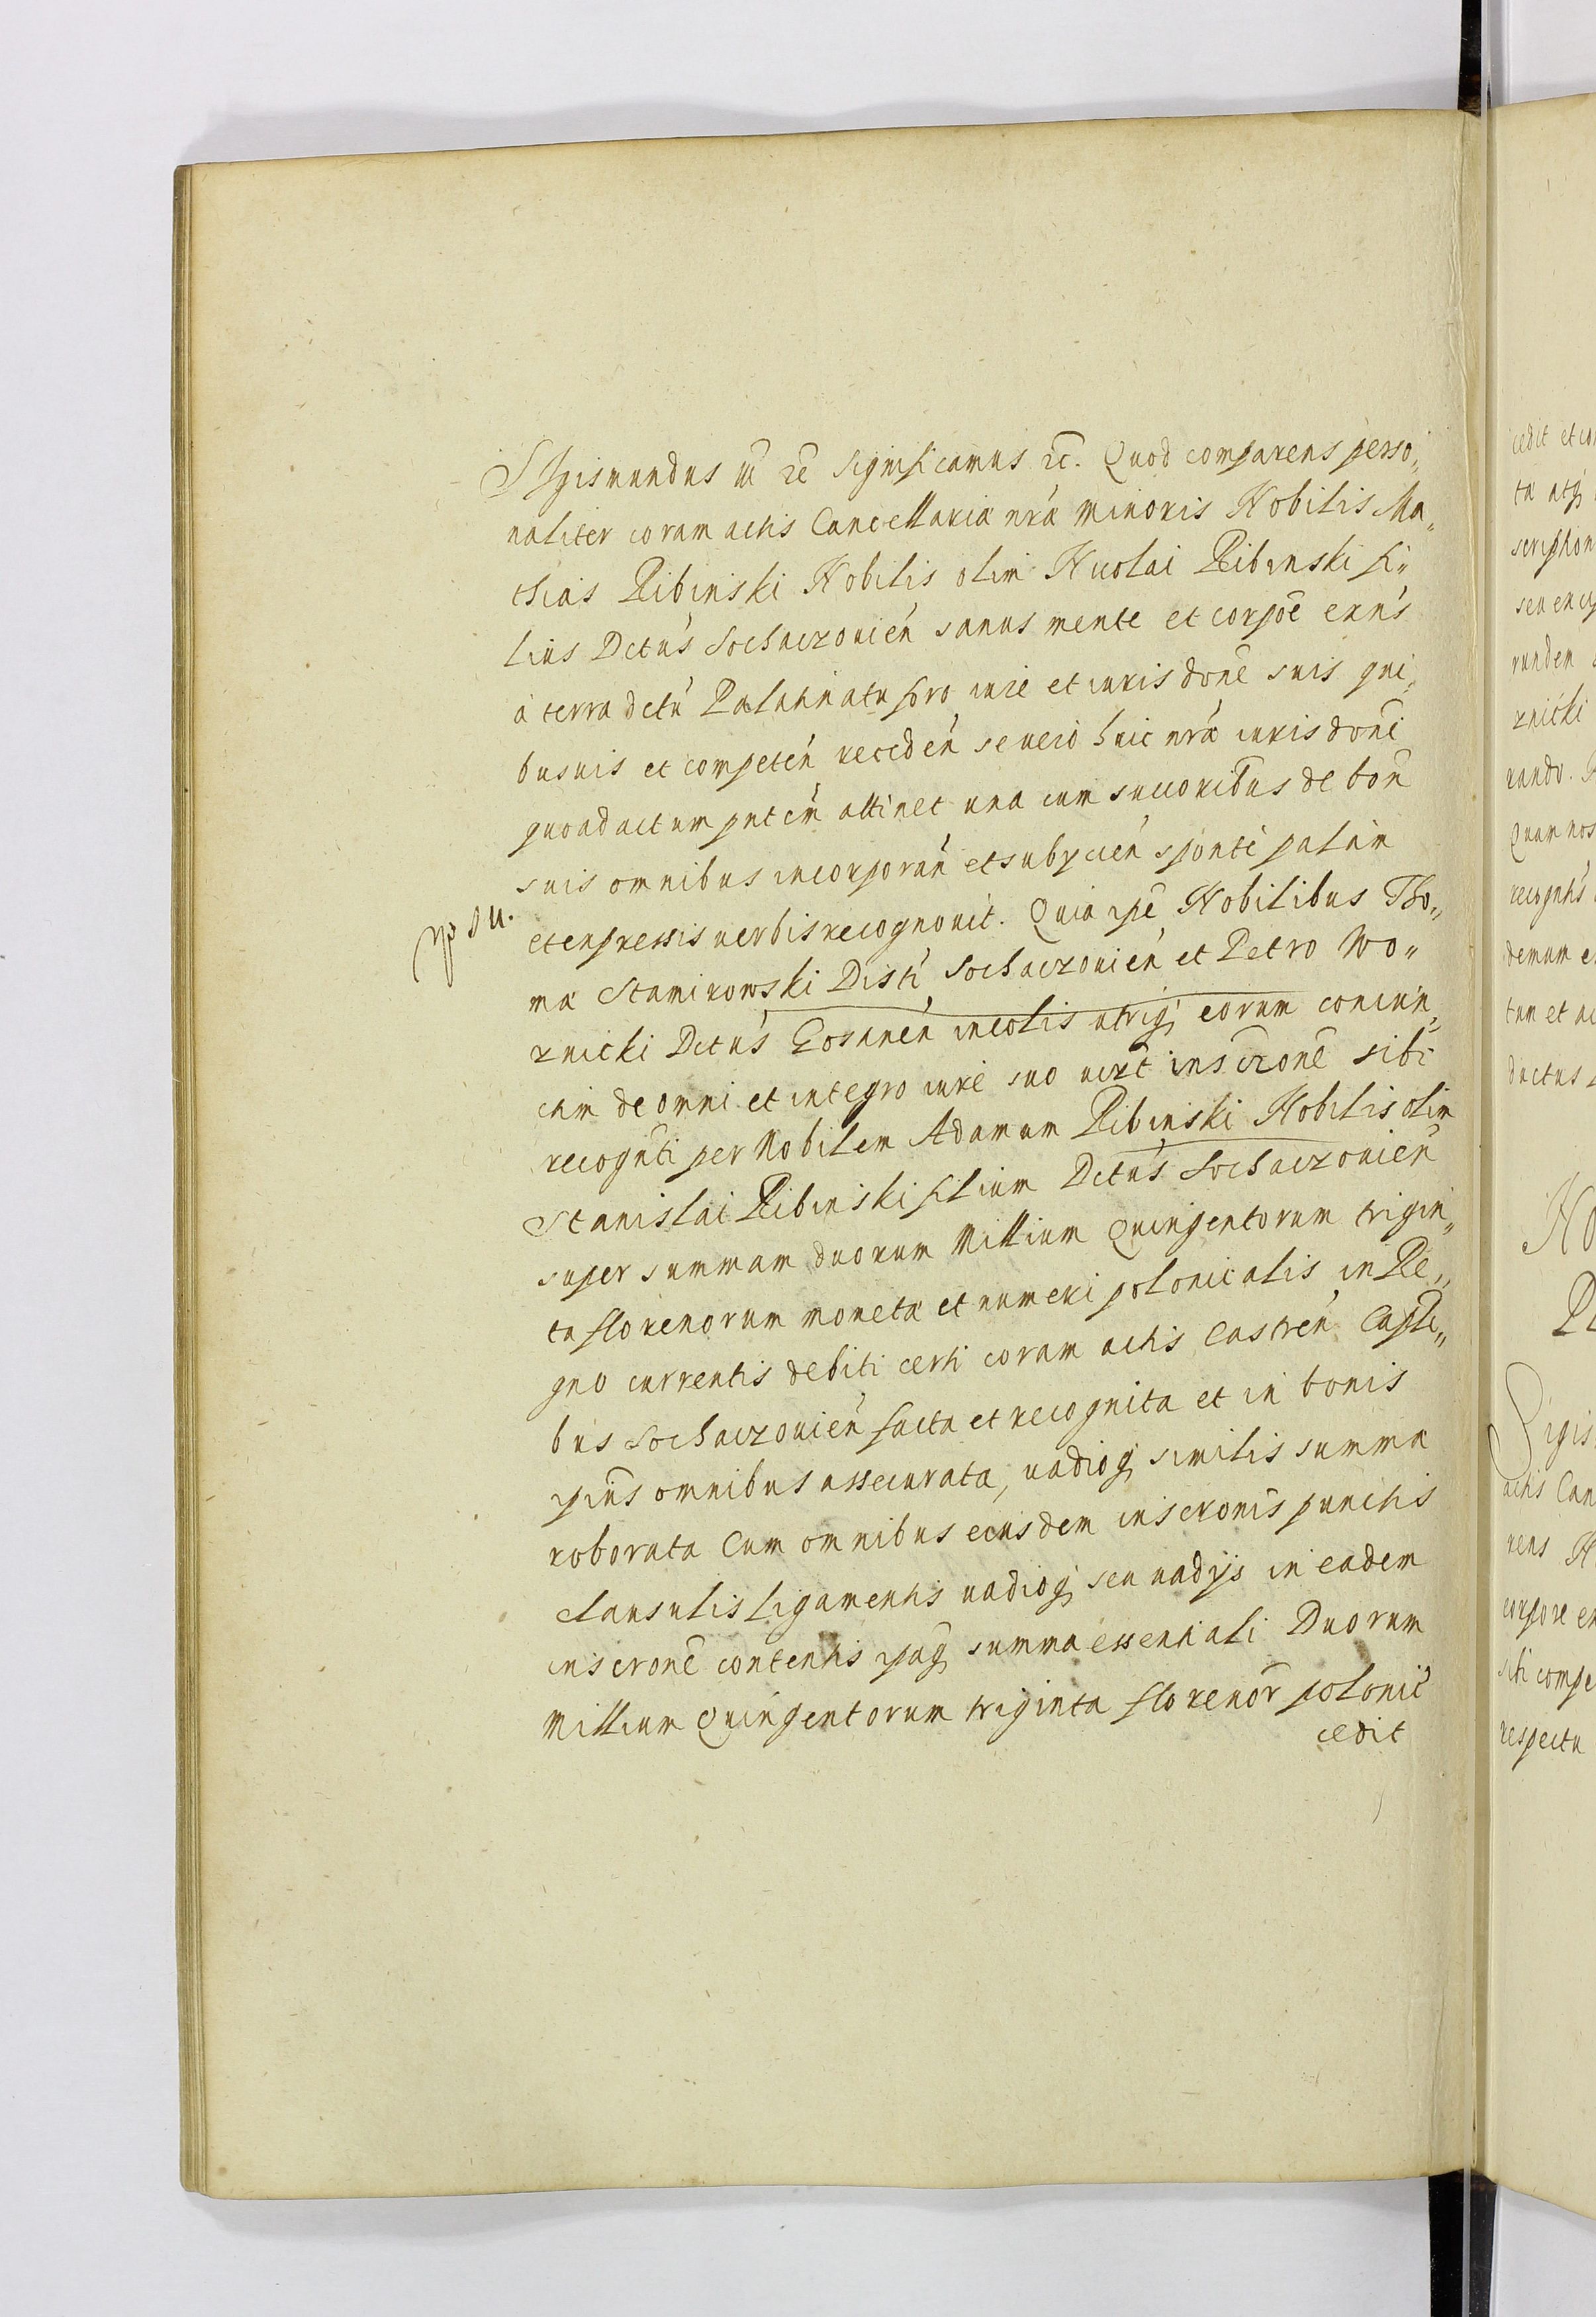 Sigismundus III etc̃ Significamus etc̃. Quod comparens perso„
naliter coram actis Cancellariæ nrã Minoris Nobilis Ma„
thias Ribinski Nobilis olim Nicolai Ribinski fi„
lius Dctus Sochaczouien sanus mente et corpoe exns
a terra dctu Palatinatu foro iure et iurisdone suis qui„
busuis et competen receden se uero huic nræ iurisdoni
quoad actum pntem attinet una cum succoribus de bon
suis omnibus incorporan et subycien sponte palam
et expressis uerbis recognouit. Quia ipe Nobilibus Tho„
mæ Stanirowski Disti Sochaczouien et Petro Wo„
znicki Dctus incolis utriq eorum coniun„
ctim de omni et integro iure suo uirt inscrone sibi
recognti per Nobilem Adamum Ribinski Nobilis olim
Stanislai Ribinski filium Dctus Sochaczouien
super summam duorum Millium Quingentorum trigin„
ta florenorum monetæ et numeri polonicalis in Re„
gno currentis debiti certi coram actis Castren Capta„
bus Sochaczouien facta et recognita et in bonis
ipius omnibus assecurata, uadioq similis summæ
roborata Cum omnibus eiusdem inscronis punctis
clausulis ligamentis uadioq seu uadijs in eadem
inscrone contentis ipaq summa essentiali Duorum
Millium Quingentorum triginta florenor polonic
cedit
cedit et
atq
rando.
Quam nos
demum
tum et
ductus
Sigis
actis Can
rens
corpore
respectu